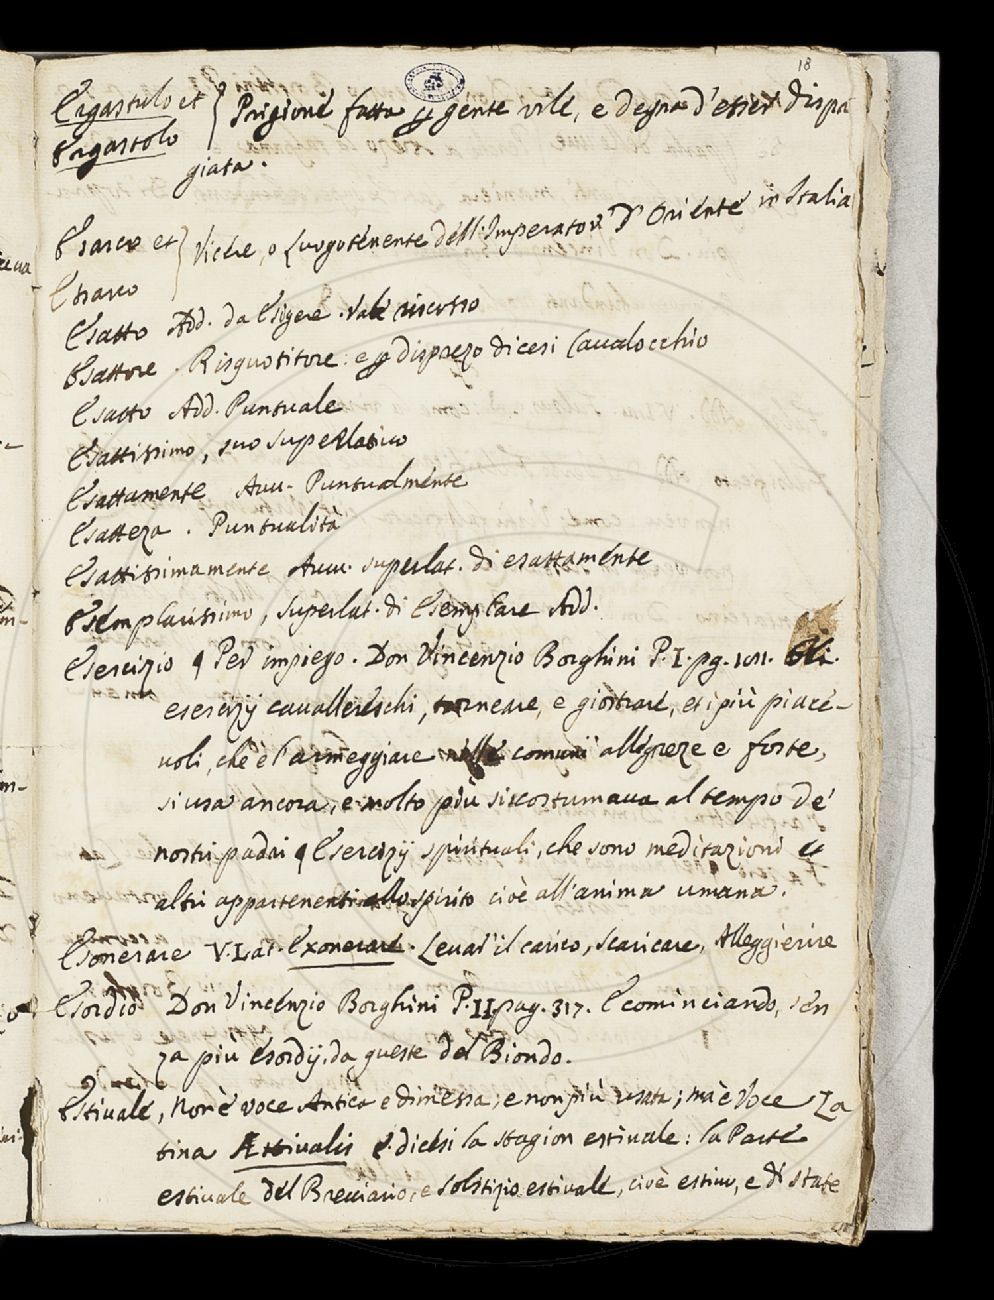 18
Ergastulo et } Prigione fatta p gente vile, e degna d'esser dispre
Ergastolo
giata.
Esarco et } Vicere, o Luogotenente dell'Imperator d'Oriente in Italia
Esarco
Esatto Add. da Esigere. Vale riscosso
Esattore. Risquotitore: e p disprezo dicesi Cavalocchio
Esatto Add. Puntuale
Esattissimo, suo superlativo
Esattamente Avv. Puntualmente
Esatteza. Puntualità
Esattissimamente Avv. superlat. di esattamente
Esemplarissimo, superlat. di Esemplare Add.
Esercizio ¶ Per impiego. Don Vincenzio Borghini P. I. pg.
esercizij cavallereschi, torneare, e giostrare, et i più piace-
voli, che è l'armeggiare nelle comuni allegreze e feste,
si usa ancora, e molto più si costumava al tempo de'
nostri padri ¶ Esercizij spirituali, che sono meditazioni et
altri appartenenti allo spirito cioè all'anima umana.
Esonerare V. Lat. Exonerare. Levar il carico, scaricare, Alleggierire
Esordio Don Vincenzio Borghini P. II pag. 317. E cominciando, sen
za più esordij, da queste del Biondo.
Estivale, Non è voce Antica e dimessa, e non più usata; ma è Voce La
tina Æstivalis e dicesi la stagion estivale: la Parte
estivale del Breviario, e solstizio estivale, cioè estivo, e di state